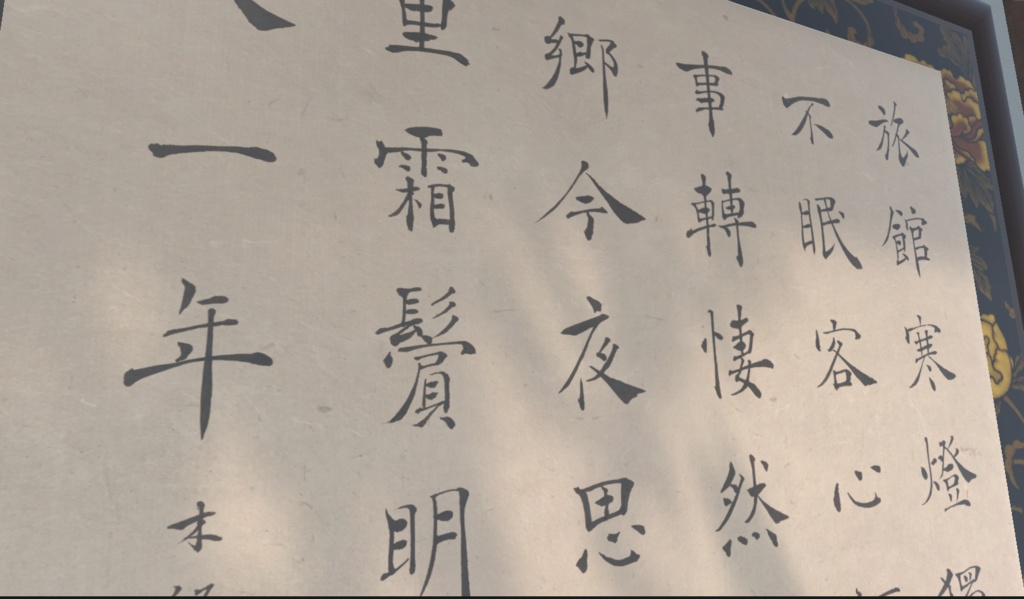 旅館寒燈獨
不眠客心
事轉悽然
鄉今夜思
里霜鬢明
一年木